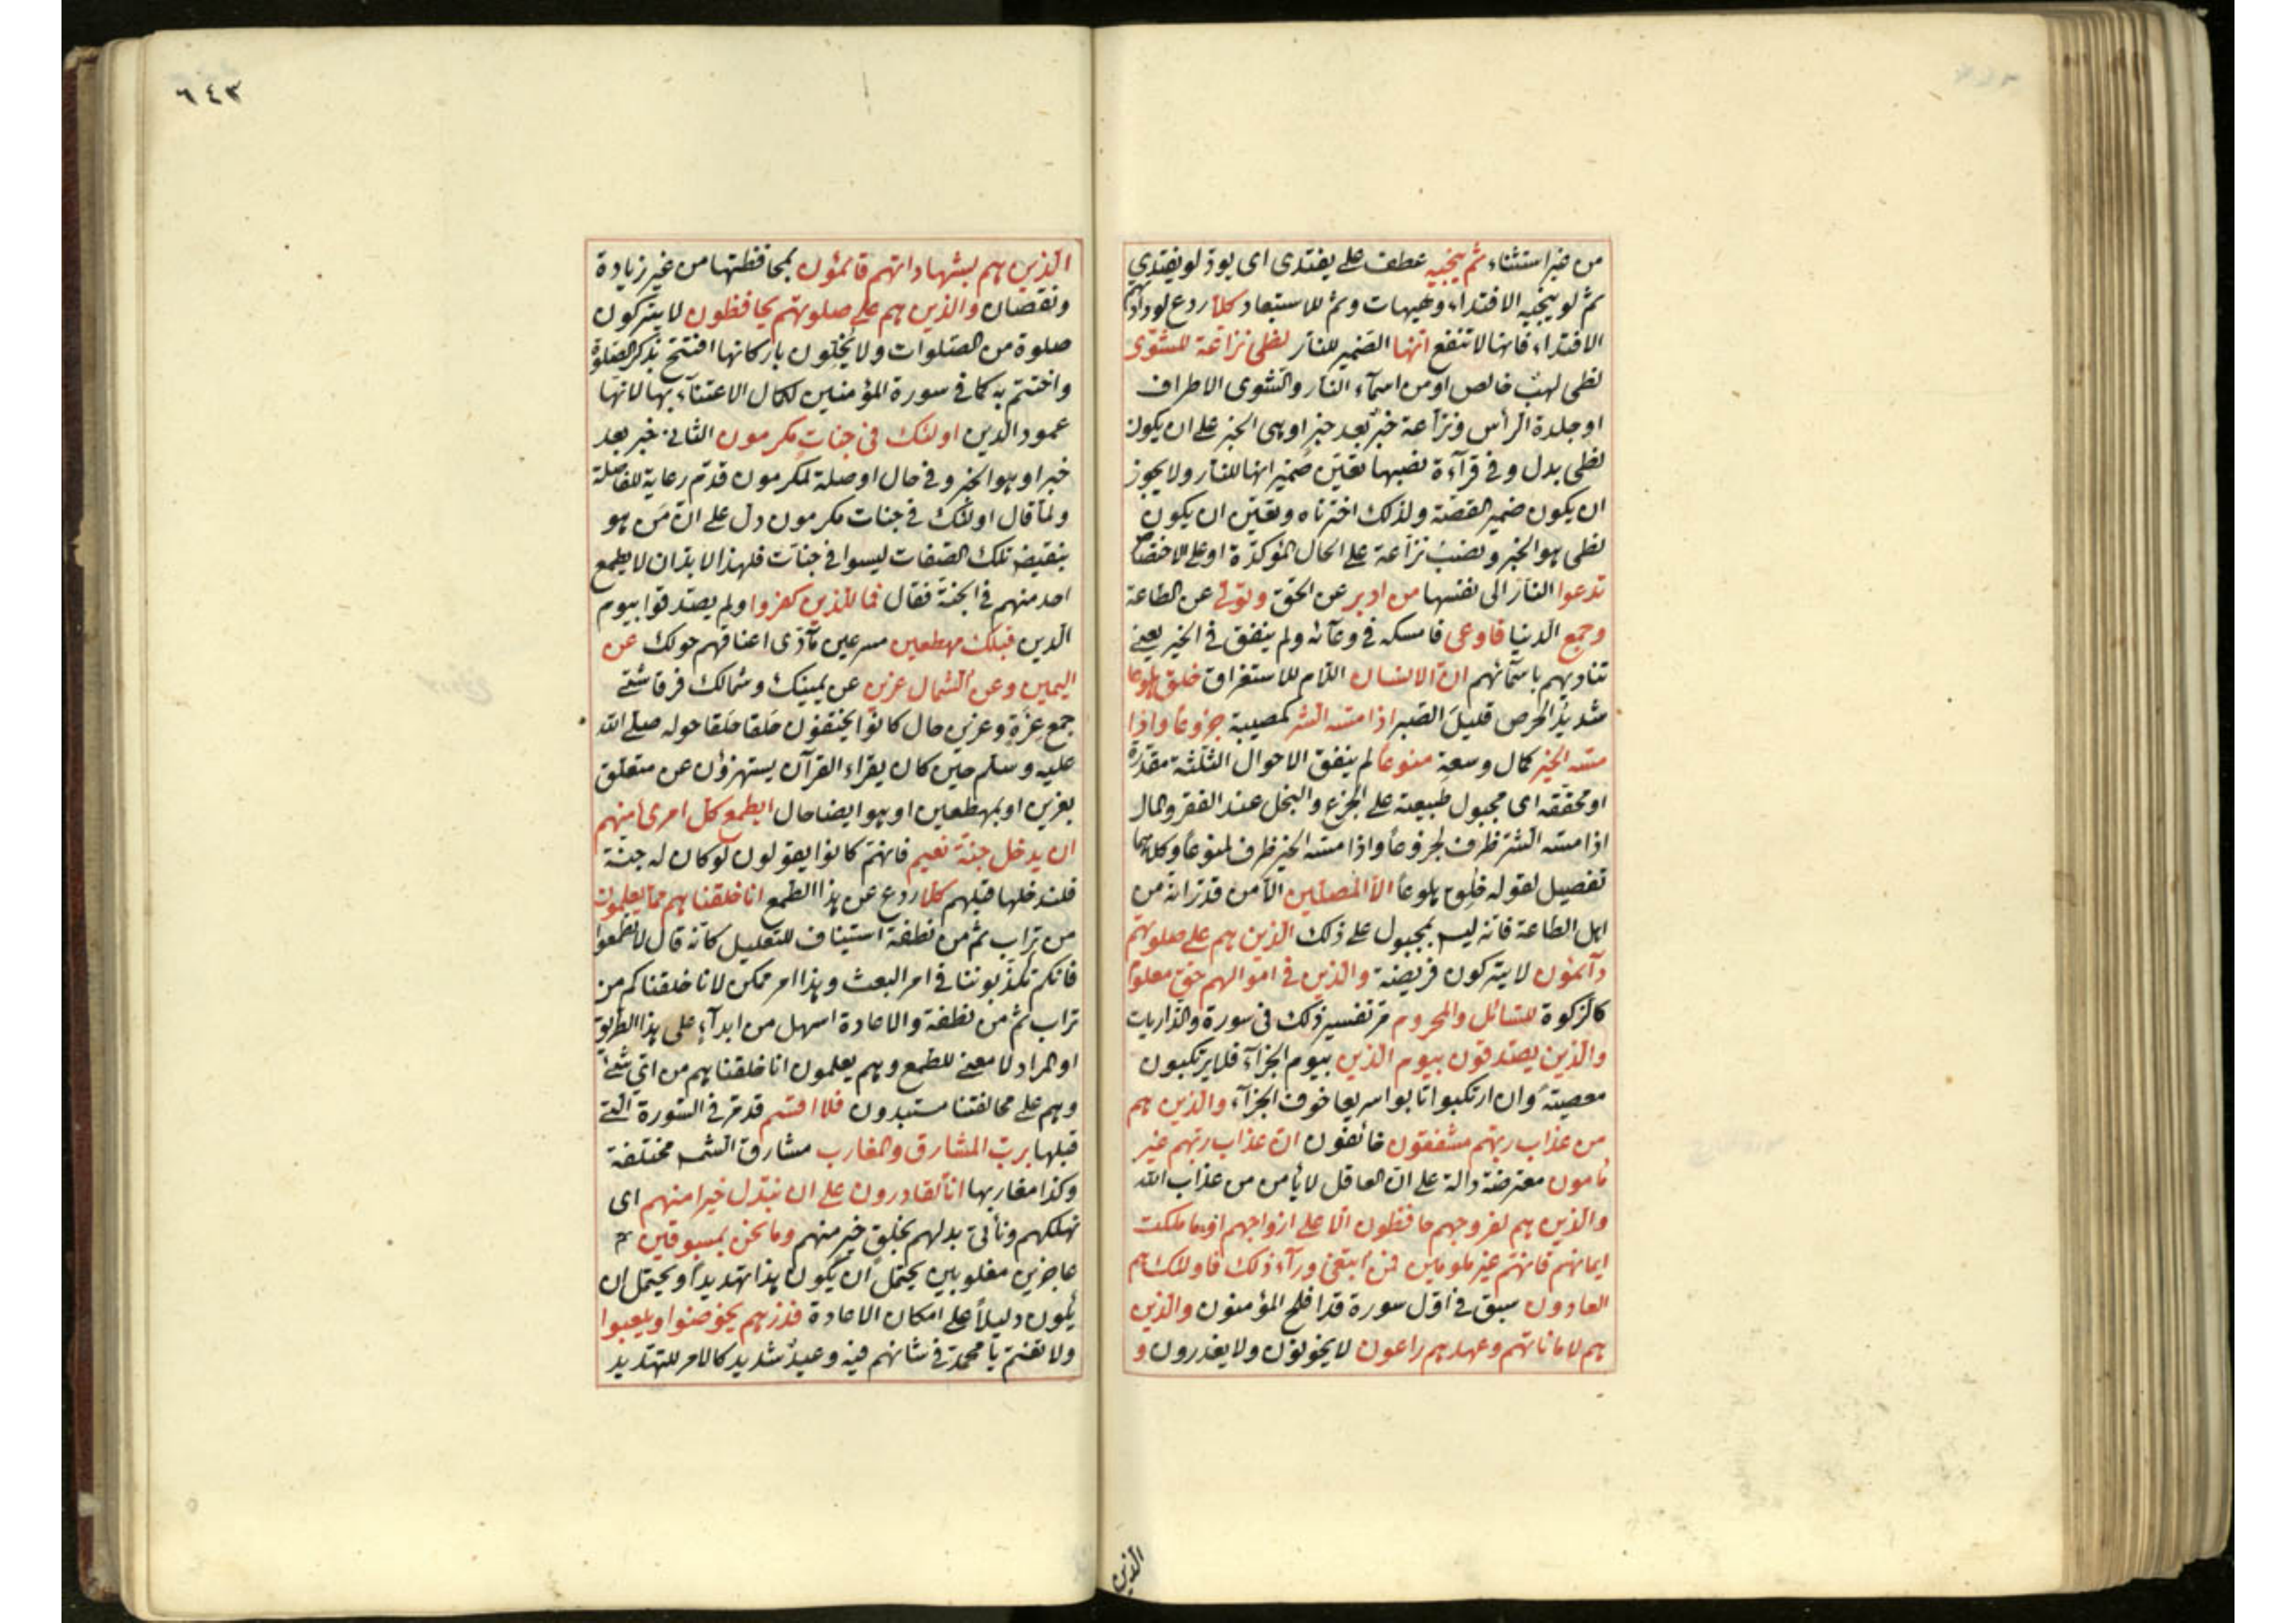 من غير استثناء ثم ينجيه عطف على يفتدى اى يود لو يفتدي
ثم لو ينجيه الافتداء وهيهات وثم للاستبعاد كلا ردع لودادتهم
الافتداء فانها لا تنفع انها الضمير للنار لظى نزاعة للشوى
لظى لهب خالص او من اسماء النار والشوى الاطراف
او جلدة الرأس ونزاعة خبر بعد خبر او هى الخبر على ان يكون
لظى بدل وفي قرآءة نصبها تعين ضمير انها للنار ولا يجوز
ان يكون ضمير القصة ولذلك اخترناه وتعين ان يكون
لظى هو الخبر ونصب نزاعة على الحال المؤكدة او على الاختصاص
تدعوا النار الى نفسها من ادبر عن الحق وتولى عن الطاعة
وجمع الدنيا فاوعى فامسكه في وعآئه ولم ينفق في الخير يعني
تناديهم باسمآئهم ان الانسان اللام للاستغراق خلق هلوعا
شديد الحرص قليل الصبر اذا مسه الشر كمصيبة جزوعا واذا
مسه الخير كمال وسعة منوعا لم ينفق الاحوال الثلثة مقدرة
او محققه اى مجبول طبيعته على الجزع والبخل عند الفقر والمال
اذا مسه الشر ظرف لجزوعا واذا مسه الخير ظرف لمنوعا وكلاهما
تفصيل لقوله خلق هلوعا الا المصلين الا من قدر انه من
اهل الطاعة فانه ليس بمجبول على ذلك الذين هم على صلوتهم
دآئمون لا يتركون فريضة والذين في اموالهم حق معلوم
كالزكوة للسائل والمحروم مر تفسير ذلك في سورة والذاريات
والذين يصدقون بيوم الدين بيوم الجزآء فلا يرتكبون
معصيته وان ارتكبوا تابوا سريعا خوف الجزآء والذين هم
من عذاب ربهم مشفقون خائفون ان عذاب ربهم غير
مامون معترضة دالة على ان العاقل لا يأمن من عذاب الله
والذين هم لفروجهم حافظون الا على ازواجهم او ما ملكت
ايمانهم فانهم غير ملومين فمن ابتغى ورآء ذلك فاولئك هم
العادون سبق في اول سورة قد افلح المؤمنون والذين
هم لاماناتهم وعهدهم راعون لا يخونون ولا يغدرون و
الذين
٦٤٣
الذين هم بشهاداتهم قائمون بمحافظتها من غير زيادة
ونقصان والذين هم على صلوتهم يحافظون لا يتركون
صلوة من الصلوات ولا يخلون باركانها افتتح بذكر الصلوة
واختتم به كما في سورة المؤمنين لكمال الاعتنآء بها لانها
عمود الدين اولئك في جنات مكرمون الثاني خبر بعد
خبر او هو الخبر وفي حال او صلة لمكرمون قدم رعاية للفاصلة
ولما قال اولئك في جنات مكرمون دل على ان من هو
بنقيض تلك الصفات ليسوا في جنات فلهذا لابد ان لا يطمع
احد منهم في الجنة فقال فما للذين كفروا ولم يصدقوا بيوم
الدين قبلك مهطعين مسرعين مآدى اعناقهم حولك عن
اليمين وعن الشمال عزين عن يمينك وشمالك فرقا شتى
جمع عزة وعزين حال كانوا يحتفون حلقا حلقا حوله صلى الله
عليه وسلم حين كان يقراء القرآن يستهزؤن عن متعلق
بعزين او بمهطعين او هو ايضا حال ايطمع كل امرئ منهم
ان يدخل جنة نعيم فانهم كانوا يقولون لو كان له جنة
فلندخلها قبلهم كلا ردع عن هذا الطمع انا خلقناهم مما يعلمون
من تراب ثم من نطفة استيناف للتعليل كانه قال لا تطمعوا
فانكم تكذبوننا في امر البعث وهذا امر ممكن لانا خلقناكم من
تراب ثم من نطفة والاعادة اسهل من ابدآء على هذا الطريق
او المراد لا معنى للطمع وهم يعلمون انا خلقناهم من اي شئ
وهم على مخالفتنا مستبدون فلا اقسم قد مر في السورة التى
قبلها برب المشارق والمغارب مشارق الشمس مختلفة
وكذا مغاربها انا لقادرون على ان نبدل خيرا منهم اى
نهلكهم ونأتى بدلهم بخلق خير منهم وما نحن بمسبوقين
عاجزين مغلوبين يحتمل ان يكون هذا تهديدا ويحتمل ان
يكون دليلا على امكان الاعادة فذرهم يخوضوا ويلعبوا
ولا تغتم يا محمد في شانهم فيه وعيد شديد كالامر للتهديد